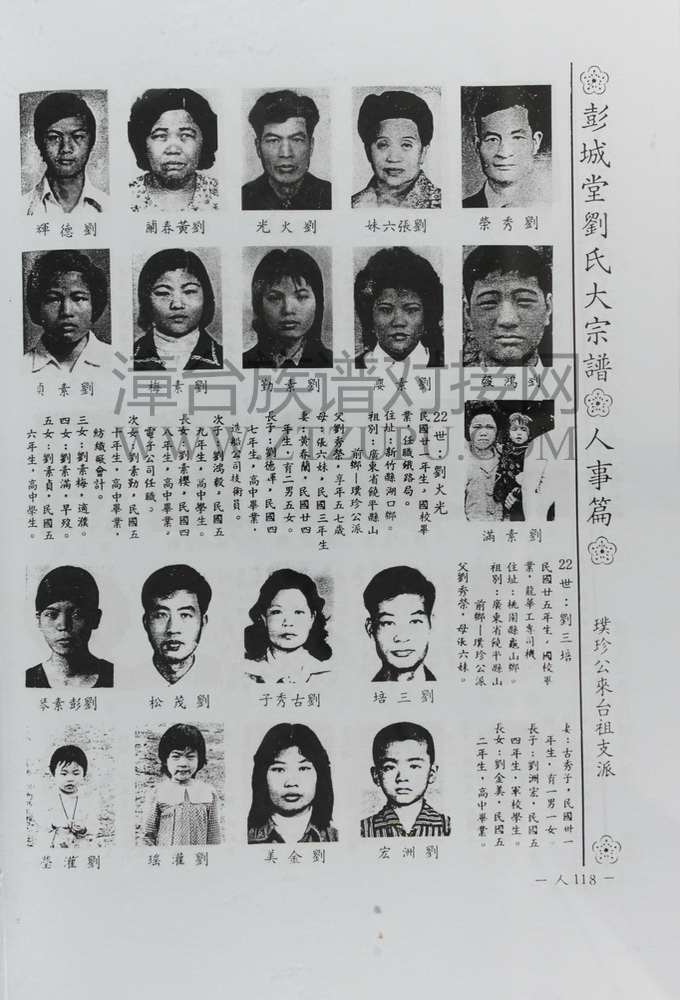 彭城堂劉氏大宗譜
人事篇
璞珍公來台祖支派
劉秀榮
劉張六妹
劉火光
劉黃春蘭
劉德輝
劉鴻毅
劉素櫻
劉素勤
劉素梅
劉素貞
劉素滿
22世：劉火光
民國廿一年生，國校畢
業，任職鐵路局。
住址：新竹縣湖口鄉。
祖別：廣東省饒平縣山
前鄉—璞珍公派
父劉秀榮，享年五七歲
母：張六妹，民國三年生
妻：黃春蘭，民國廿四
年生，有二男五女。
長子：劉德輝，民國四
七年生，高中畢業，
造船公司技術員。
次子：劉鴻毅，民國五
九年生，高中學生。
長女：劉素櫻，民國四
八年生，高中畢業，
電子公司任職。
次女：劉素勤，民國五
十年生，高中畢業，
紡織廠會計。
三女：劉素梅，適濮。
四女：劉素滿，早歿。
五女：劉素貞，民國五
六年生，高中學生。
22世：劉三培
民國廿五年生，國校畢
業，龍華工專司機
住址：桃園縣龜山鄉。
祖別：廣東省饒平縣山
前鄉—璞珍公派
父劉秀榮，母張六妹。
劉三培
劉古秀子
劉茂松
劉彭素琴
妻：古秀子，民國卅一
年生，有一男一女。
長子：劉洲宏，民國五
四年生，軍校學生。
長女：劉金美，民國五
二年生，高中畢業。
劉洲宏
劉金美
劉灌瑤
劉灌瑩
—人118—
漳台族谱对接网
WWW.ZTZUPU.COM